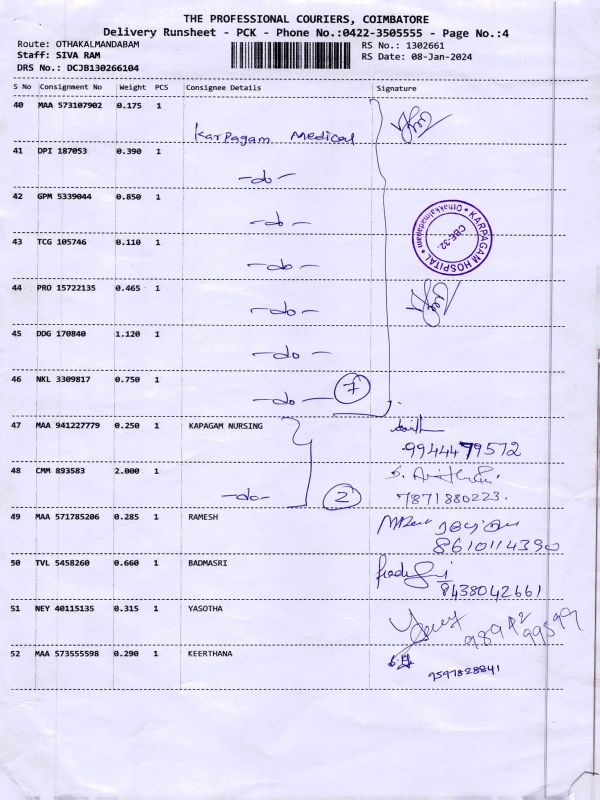 THE PROFESSIONAL COURIERS, COIMBATORE
Delivery Runsheet - PCK - Phone No.:0422-3505555 - Page No.:4
Route: OTHAKALMANDABAM
RS No.: 1302661
Staff: SIVA RAM
RS Date: 08-Jan-2024
DRS No.: DCJB130266104
S No Consignment No Weight PCS Consignee Details Signature
40 MAA 573107902 0.175 1
Karpagam Medical
41 DPI 187053 0.390 1
-do-
42 GPM 5339044 0.850 1
-do-
KARPAGAM HOSPITAL
CBE-32.
43 TCG 105746 0.110 1
-do-
44 PRO 15722135 0.465 1
-do-
45 DDG 170840 1.120 1
-do-
46 NKL 3309817 0.750 1
-do- 7
47 MAA 941227779 0.250 1 KAPAGAM NURSING
9944479572
48 CMM 893583 2.000 1
-do- 2
7871880223.
49 MAA 571785206 0.285 1 RAMESH
8610114390
50 TVL 5458260 0.660 1 BADMASRI
8438042661
51 NEY 40115135 0.315 1 YASOTHA
52 MAA 573555598 0.290 1 KEERTHANA
9597828841